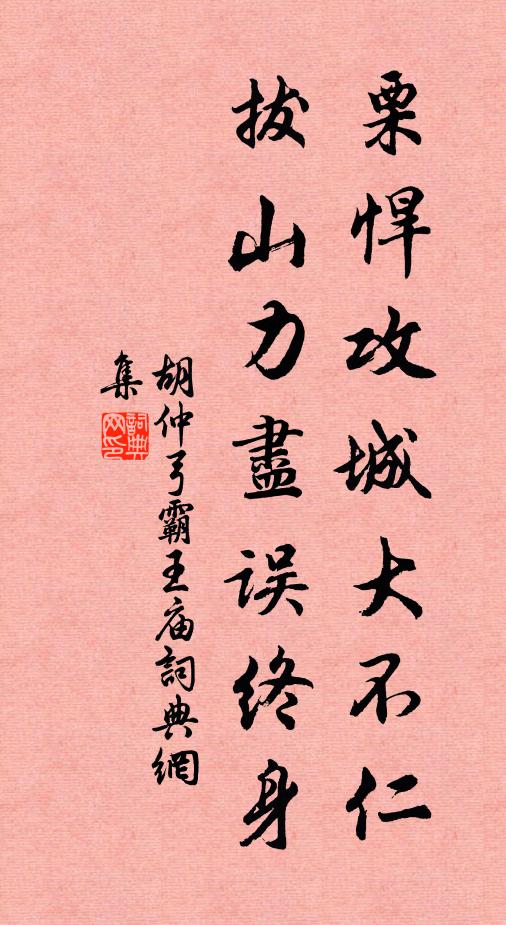 栗悍攻城大不仁
拔山力盡误终身
胡仲弓霸王庙詞典網
集
詞典
网印